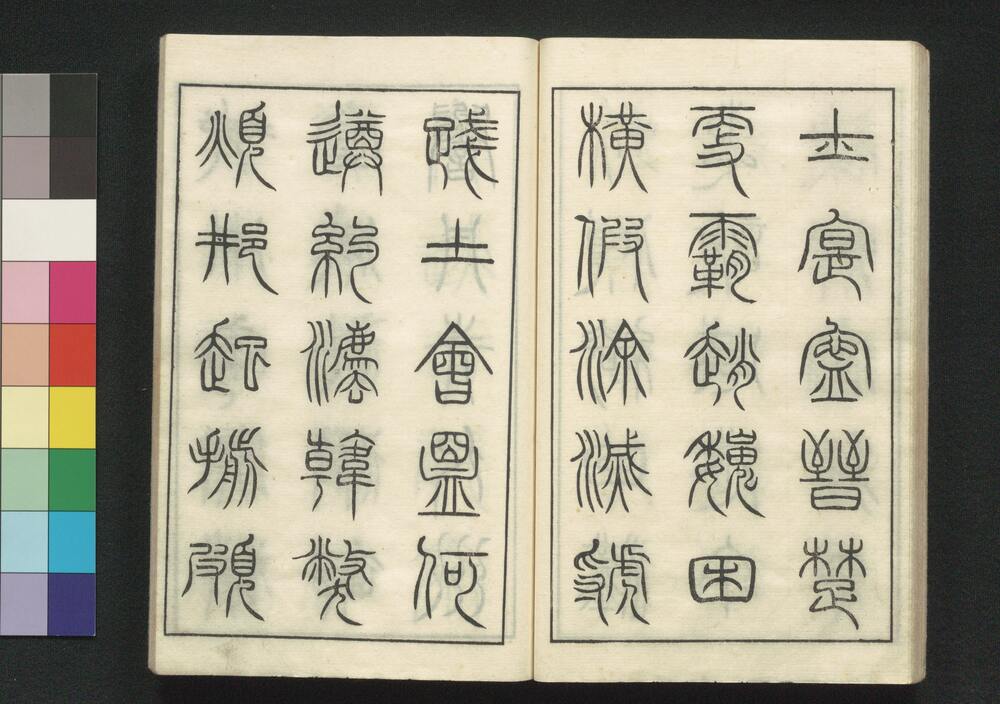 士寔寧晉楚
更霸趙魏困
橫假涂滅虢
踐土會盟何
遵約法韓弊
煩刑起翦頗